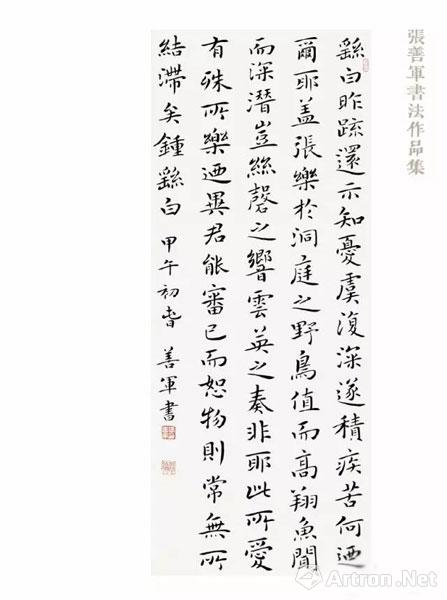 張善軍書法作品集
繇白昨疏還示知憂虞復深遂積疾苦何迺
爾耶蓋張樂於洞庭之野鳥值而高翔魚聞
而深潛豈絲磬之響雲英之奏非耶此所愛
有殊所樂迺異君能審己而恕物則常無所
結滯矣鍾繇白 甲午初旾 善軍書
Artron.Net